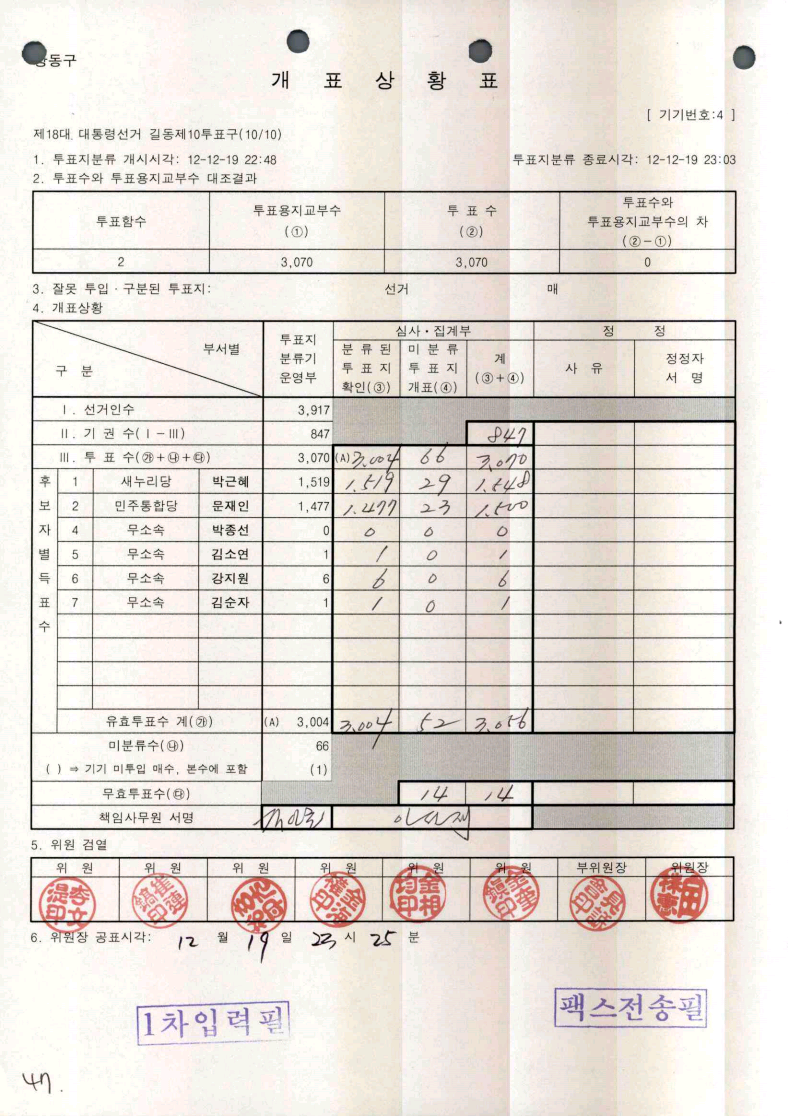 강동구
개 표 상 황 표
[ 기기번호:4 ]
제18대 대통령선거 길동제10투표구(10/10)
1. 투표지분류 개시시각: 12-12-19 22:48 투표지분류 종료시각: 12-12-19 23:03
2. 투표수와 투표용지교부수 대조결과
투표함수 투표용지교부수 (①) 투 표 수 (②) 투표수와 투표용지교부수의 차 (②-①)
2 3,070 3,070 0
3. 잘못 투입 · 구분된 투표지: 선거 매
4. 개표상황
구 분 부서별 투표지 분류기 운영부 심사·집계부 정 정
분 류 된 투 표 지 확인(③) 미 분 류 투 표 지 개표(④) 계 (③+④) 사 유 정정자 서 명
Ⅰ. 선거인수 3,917
Ⅱ. 기 권 수(Ⅰ-Ⅲ) 847 847
Ⅲ. 투 표 수(㉮+㉯+㉰) 3,070 (A) 3,004 66 3,070
후보자별득표수
1 새누리당 박근혜 1,519 1,519 29 1,548
2 민주통합당 문재인 1,477 1,477 23 1,500
4 무소속 박종선 0 0 0 0
5 무소속 김소연 1 1 0 1
6 무소속 강지원 6 6 0 6
7 무소속 김순자 1 1 0 1
유효투표수 계(㉮) (A) 3,004 3,004 52 3,056
미분류수(㉯) 66
( ) ⇒ 기기 미투입 매수, 본수에 포함 (1)
무효투표수(㉰) 14 14
책임사무원 서명
5. 위원 검열
위 원 위 원 위 원 위 원 위 원 위 원 부위원장 위원장
6. 위원장 공표시각: 12 월 19 일 23 시 25 분
1차입력필
팩스전송필
47.